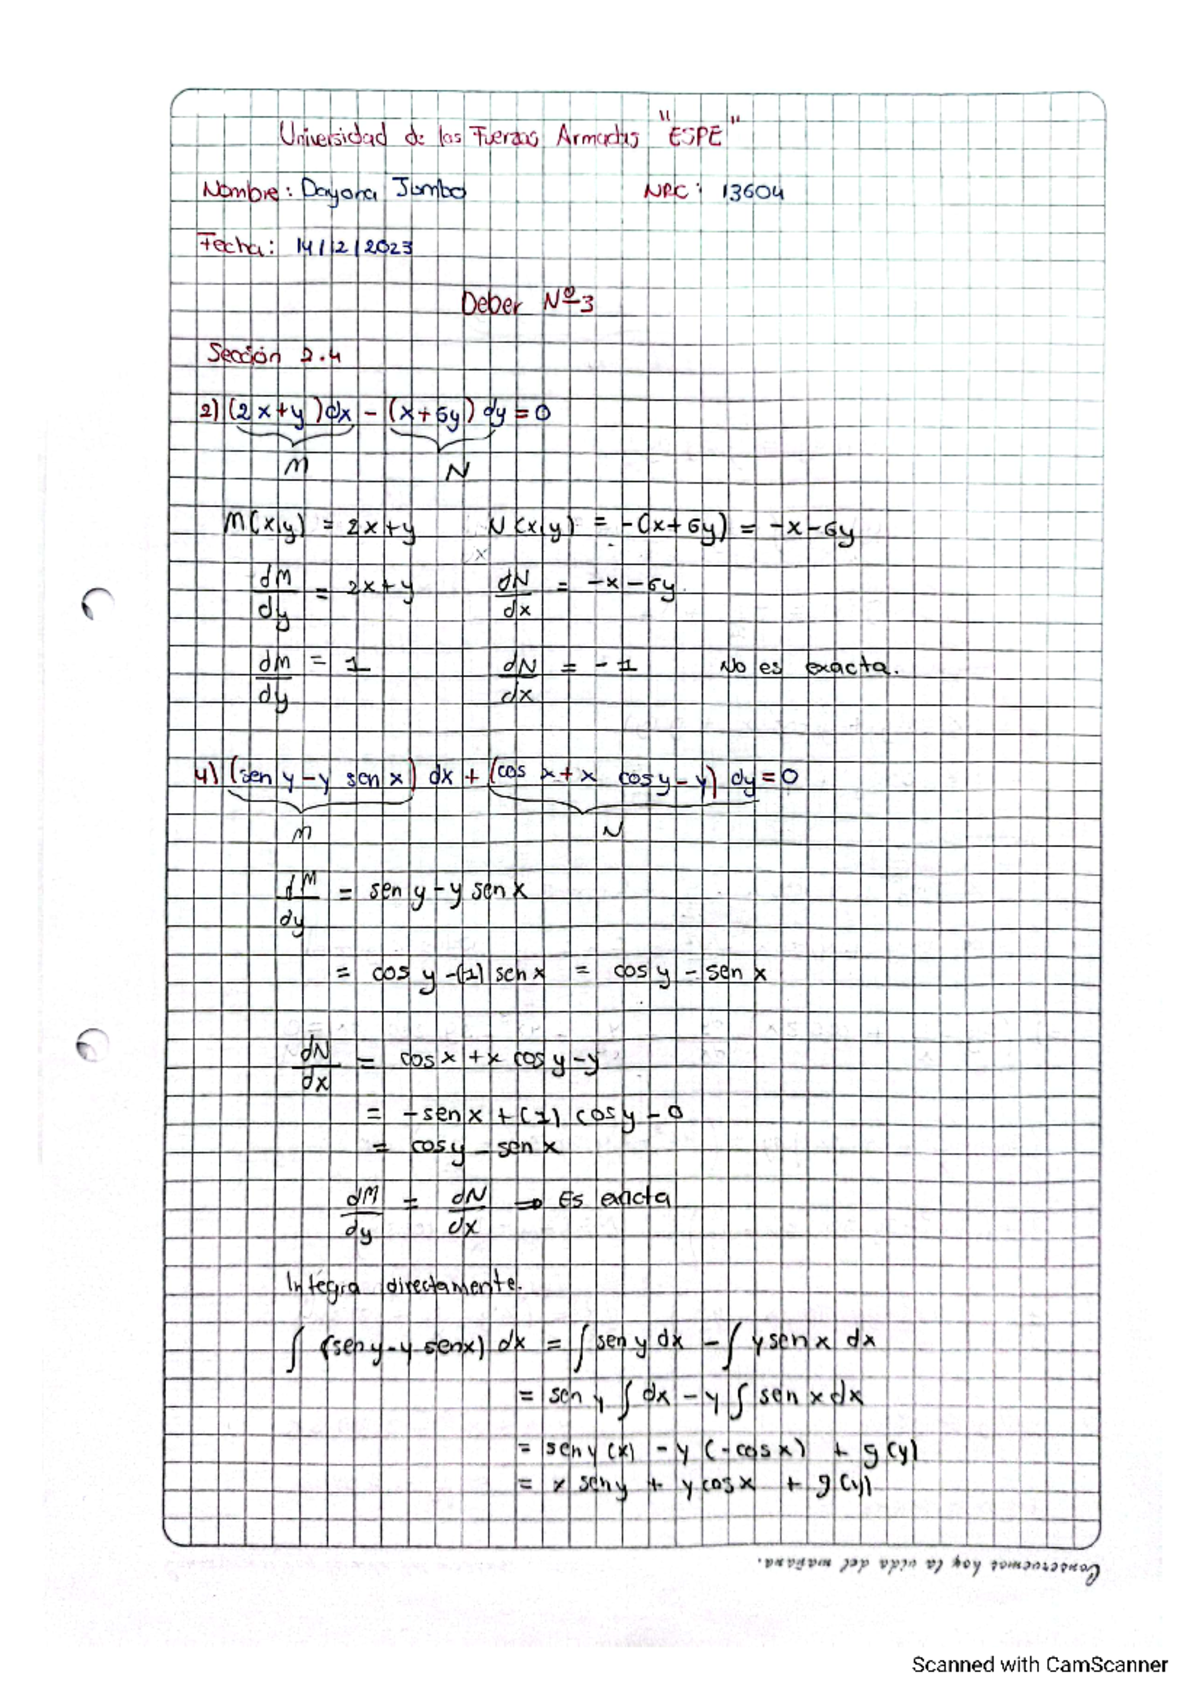 Universidad de las Fuerzas Armadas "ESPE"
Nombre: Dayana Jumbo NRC: 13604
Fecha: 14/12/2023
Deber Nº3
Sección 2.4
2) (2x+y)dx - (x+6y) dy = 0
M N
M(x,y) = 2x+y N(x,y) = -(x+6y) = -x-6y
dM/dy = 2x+y dN/dx = -x-6y
dM/dy = 1 dN/dx = -1 No es exacta.
4) (sen y - y sen x) dx + (cos x + x cos y - y) dy = 0
M N
dM/dy = sen y - y sen x
= cos y -(1) sen x = cos y - sen x
dN/dx = cos x + x cos y - y
= -sen x + (1) cos y - 0
= cos y - sen x
dM/dy = dN/dx ⇒ Es exacta
Integra directamente.
∫ (sen y - y sen x) dx = ∫ sen y dx - ∫ y sen x dx
= sen y ∫ dx - y ∫ sen x dx
= sen y (x) - y (-cos x) + g(y)
= x sen y + y cos x + g(y)
Conservemos hoy la vida del mañana.
Scanned with CamScanner